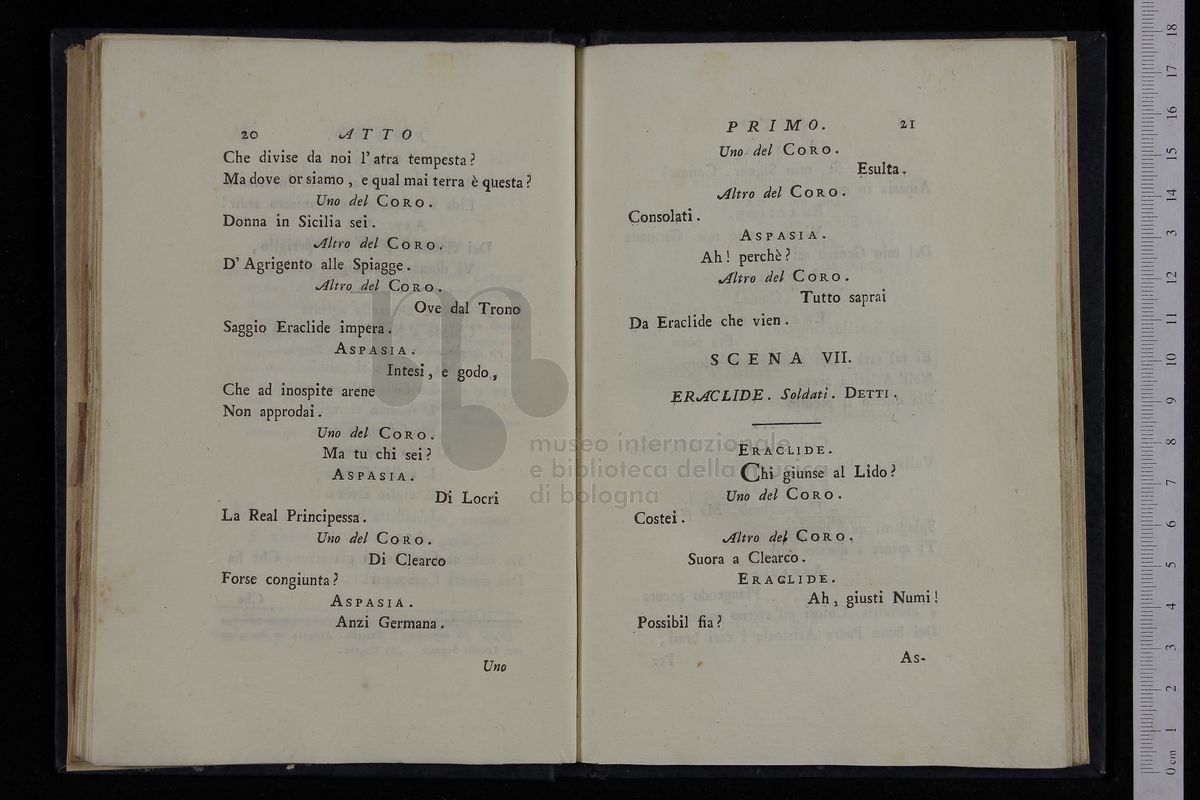 20 ATTO
Che divise da noi l'atra tempesta?
Ma dove or siamo, e qual mai terra è questa?
Uno del CORO.
Donna in Sicilia sei.
Altro del CORO.
D'Agrigento alle Spiagge.
Altro del CORO.
Ove dal Trono
Saggio Eraclide impera.
ASPASIA.
Intesi, e godo,
Che ad inospite arene
Non approdai.
Uno del CORO.
Ma tu chi sei?
ASPASIA.
Di Locri
La Real Principessa.
Uno del CORO.
Di Clearco
Forse congiunta?
ASPASIA.
Anzi Germana.
Uno
PRIMO. 21
Uno del CORO.
Esulta.
Altro del CORO.
Consolati.
ASPASIA.
Ah! perchè?
Altro del CORO.
Tutto saprai
Da Eraclide che vien.
SCENA VII.
ERACLIDE. Soldati. DETTI.
ERACLIDE.
Chi giunse al Lido?
Uno del CORO.
Costei.
Altro del CORO.
Suora a Clearco.
ERACLIDE.
Ah, giusti Numi!
Possibil fia?
As-
museo internazionale
e biblioteca della musica
di bologna
0 cm 1 2 3 4 5 6 7 8 9 10 11 12 13 14 15 16 17 18